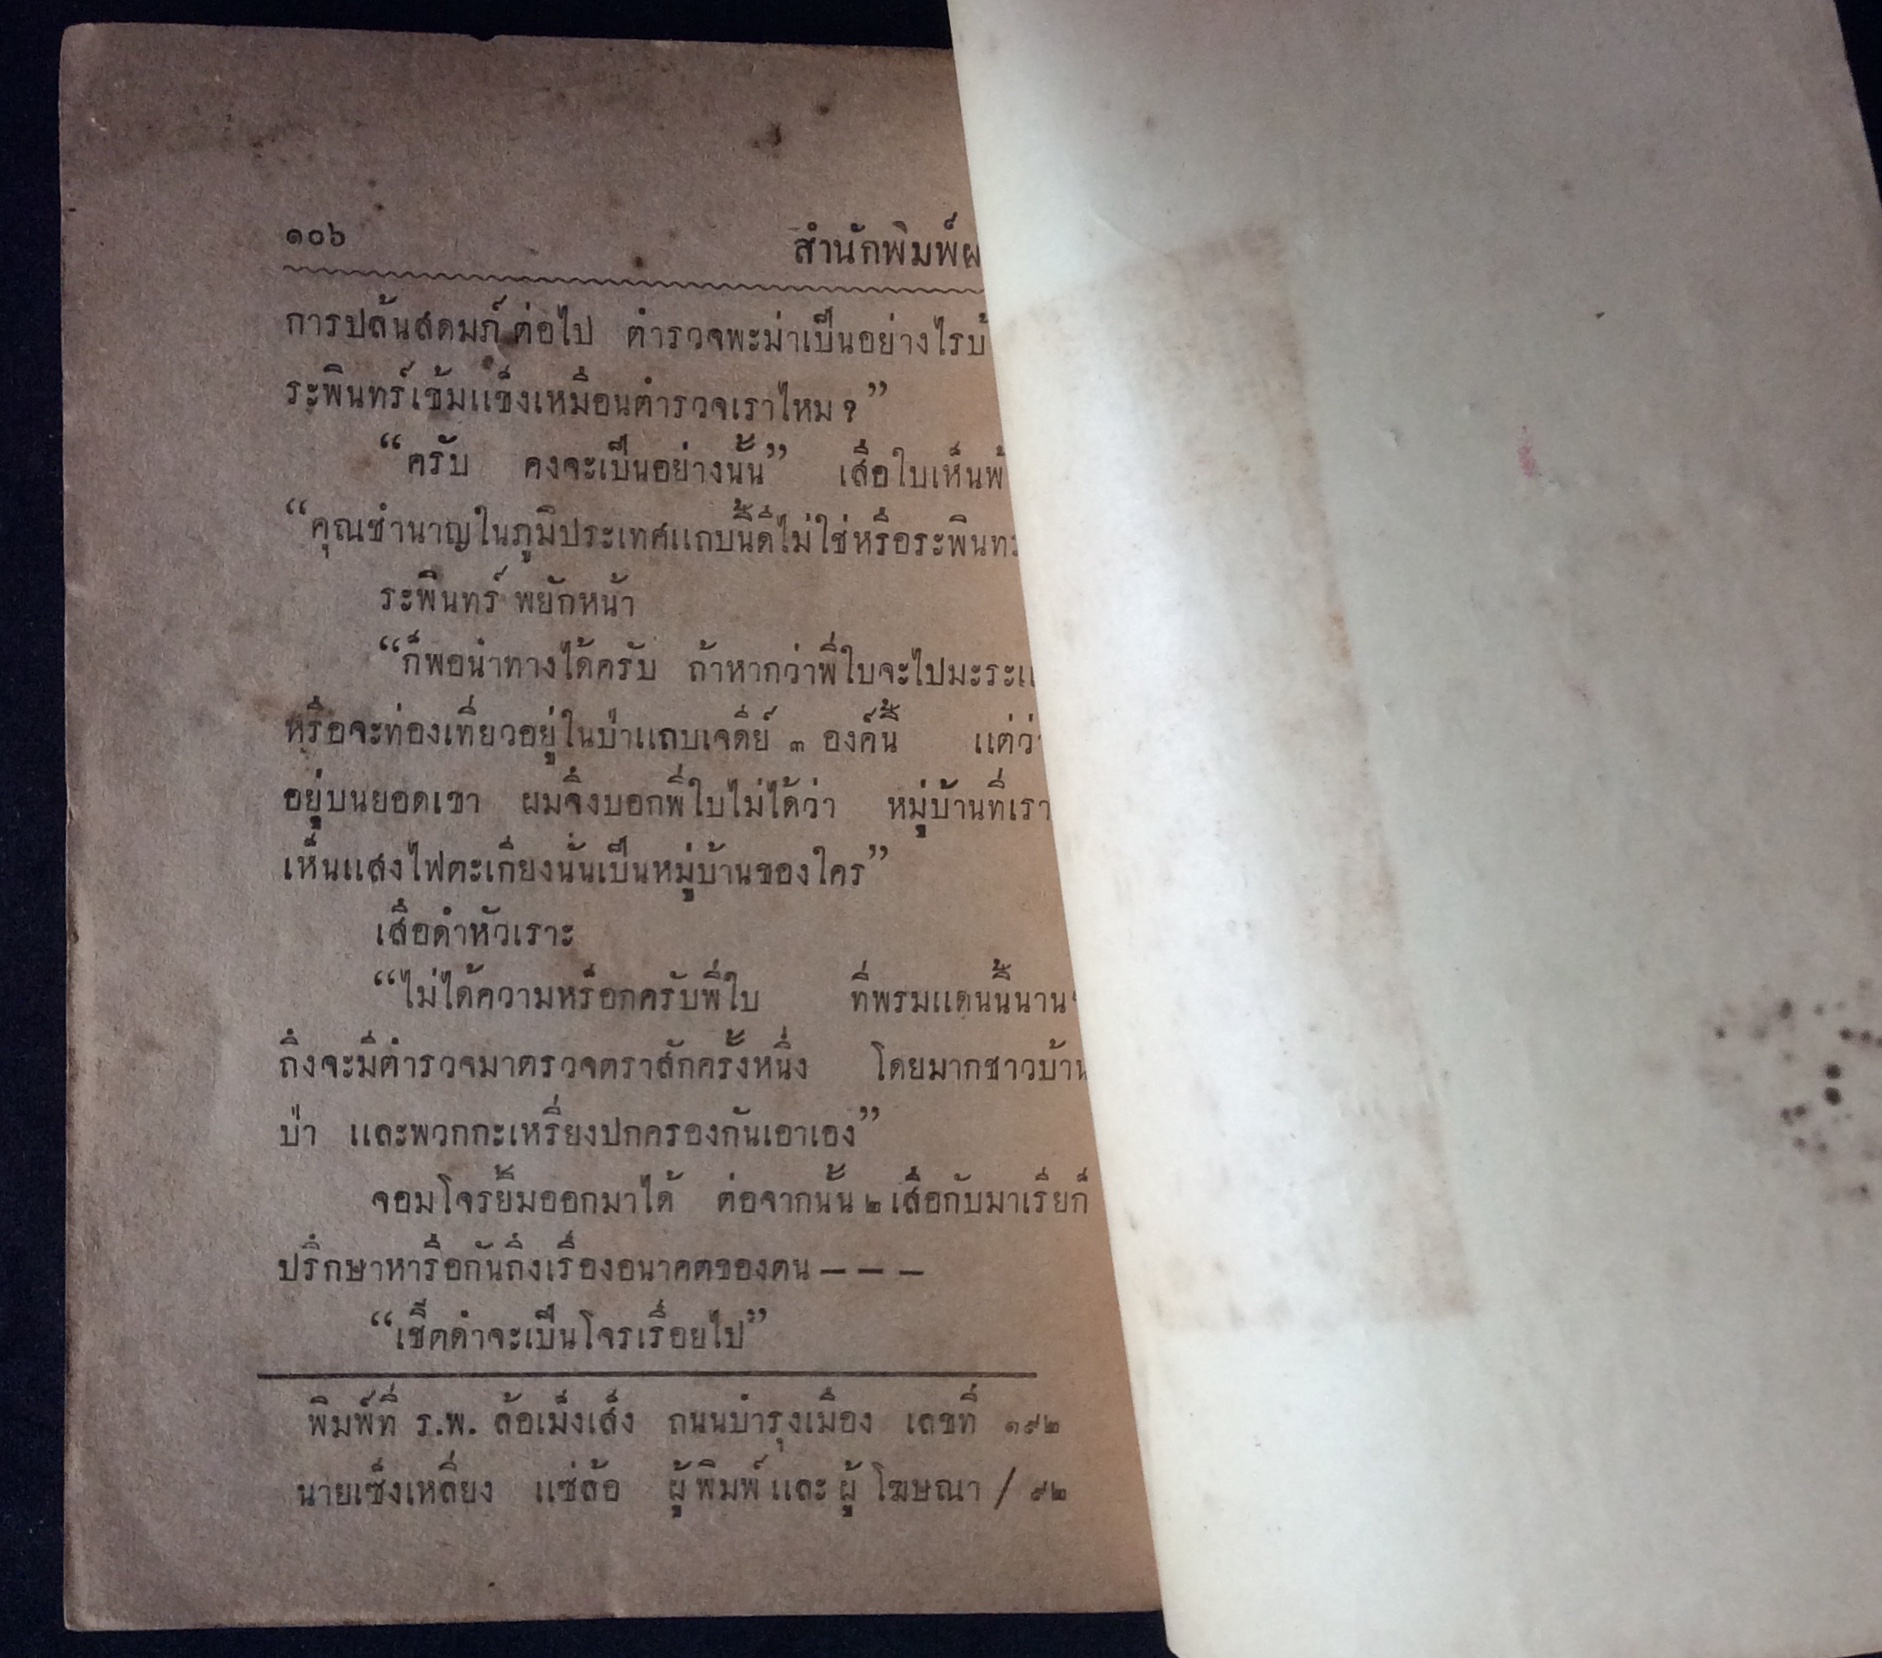 ๑๐๖ สำนักพิมพ์
การปล้นสดมภ์ต่อไป ตำรวจพะม่าเป็นอย่างไร
ระพินทร์เข้มแข็งเหมือนตำรวจเราไหม ?”
“ครับ คงจะเป็นอย่างนั้น” เสือใบเห็น
“คุณชำนาญในภูมิประเทศแถบนี้ดีไม่ใช่หรือระพินทร
ระพินทร์ พยักหน้า
“ก็พอนำทางได้ครับ ถ้าหากว่าพี่ใบจะไป
หรือจะท่องเที่ยวอยู่ในป่าแถบเจดีย์ ๓ องค์นี้ แต่
อยู่บนยอดเขา ผมจึงบอกพี่ใบไม่ได้ว่า หมู่บ้านที่เรา
เห็นแสงไฟตะเกียงนั่นเป็นหมู่บ้านของใคร”
เสือดำหัวเราะ
“ไม่ได้ความหร็อกครับพี่ใบ ที่พรมแดนนี้นาน
ถึงจะมีตำรวจมาตรวจตราสักครั้งหนึ่ง โดยมากชาวบ้าน
ป่า และพวกกะเหรี่ยงปกครองกันเอาเอง”
จอมโจรยิ้มออกมาได้ ต่อจากนั้น ๒ เสือกับมาเรียก็
ปรึกษาหารือกันถึงเรื่องอนาคตของตน – – –
“เชิ๊ตดำจะเป็นโจรเรื่อยไป”
พิมพ์ที่ ร.พ. ล้อเม็งเส็ง ถนนบำรุงเมือง เลขที่ ๑๙๒
นายเซ็งเหลี่ยง แซ่ล้อ ผู้พิมพ์ และ ผู้ โฆษณา / ๙๒